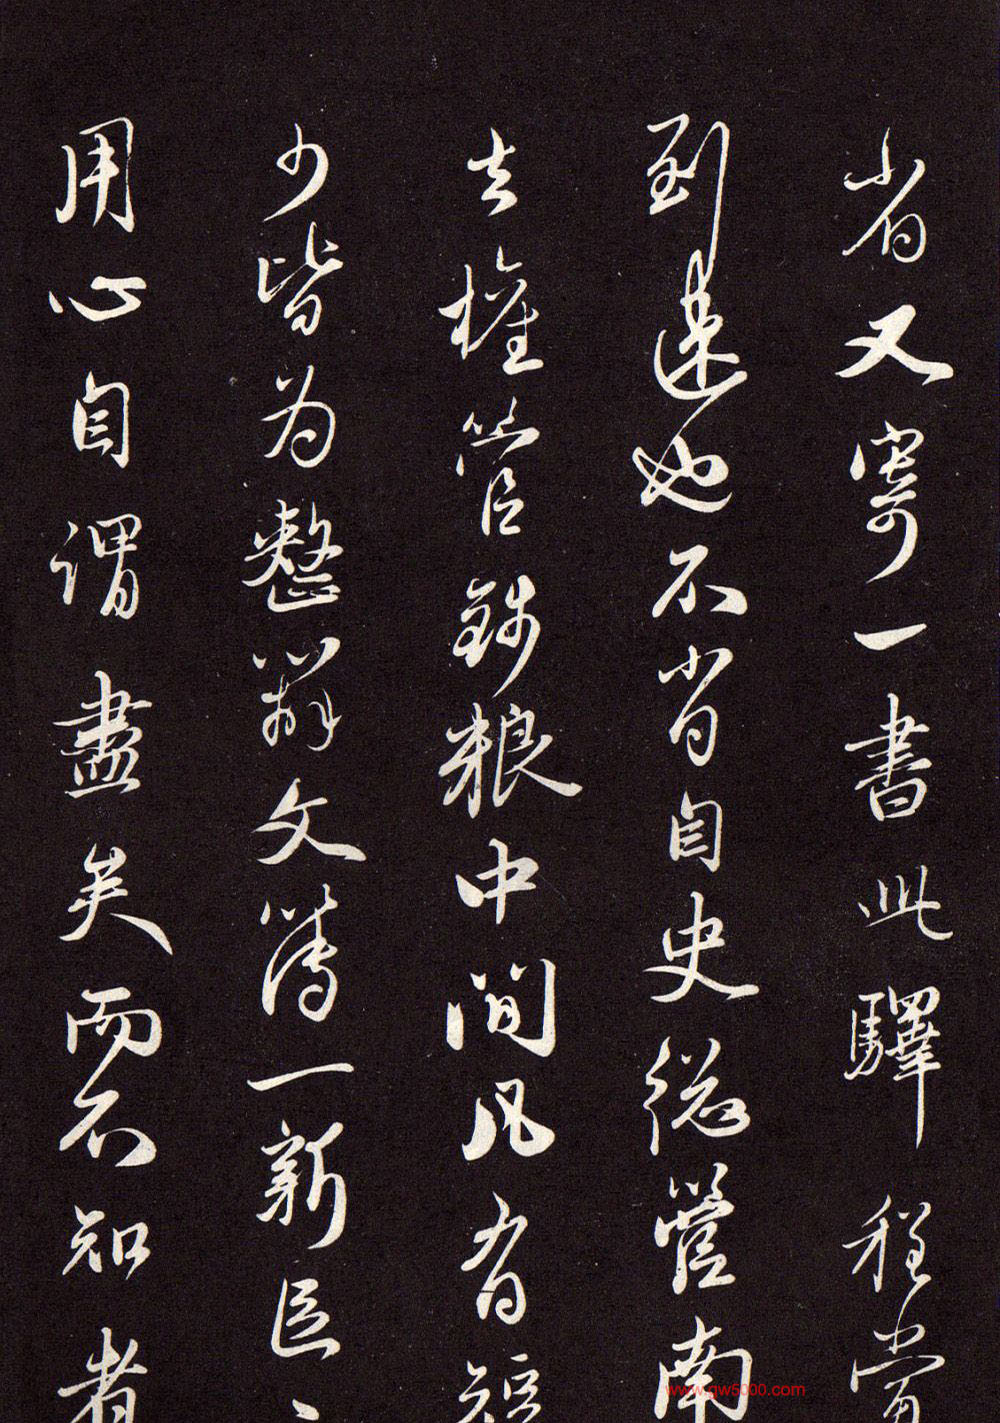 省又寄一書此驛程當
到速也不省自史總管南
去權管錢粮中間凡有短
少皆为整辭文簿一新臣
用心自謂盡矣而不知者
www.gw5000.com